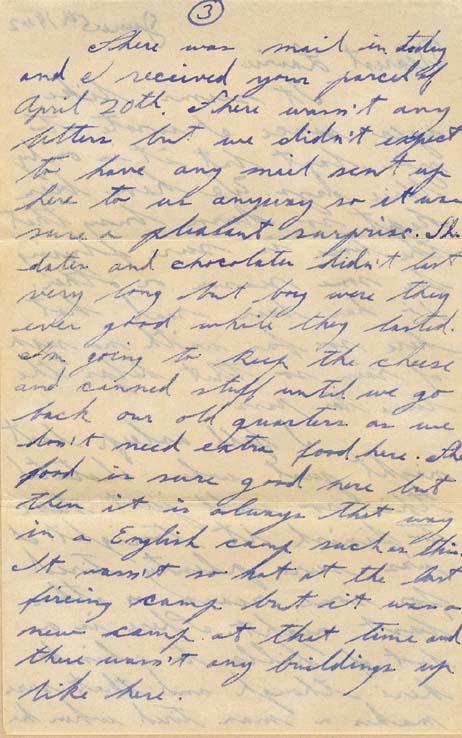 3
There was mail in today
and I received your parcel of
April 20th. There wasn't any
letters but we didn't expect
to have any mail sent up
here to us anyway so it was
sure a pleasant surprise. The
dates and chocolates didn't last
very long but boy were they
ever good while they lasted.
I'm going to keep the cheese
and canned stuff until we go
back our old quarters as we
don't need extra food here. The
food is sure good here but
then it is always that way
in a English camp such as this.
It wasn't so hot at the last
fireing camp but it was a
new camp at that time and
there wasn't any buildings up
like here.